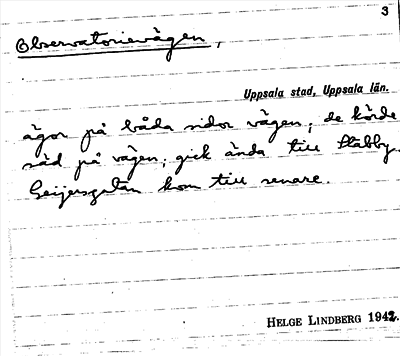 3
Observatorievägen,
Uppsala stad, Uppsala län.
ägor på båda sidor vägen; de körde
säd på vägen; gick ända till Stabby.
Geijersgatan kom till senare.
HELGE LINDBERG 1942.